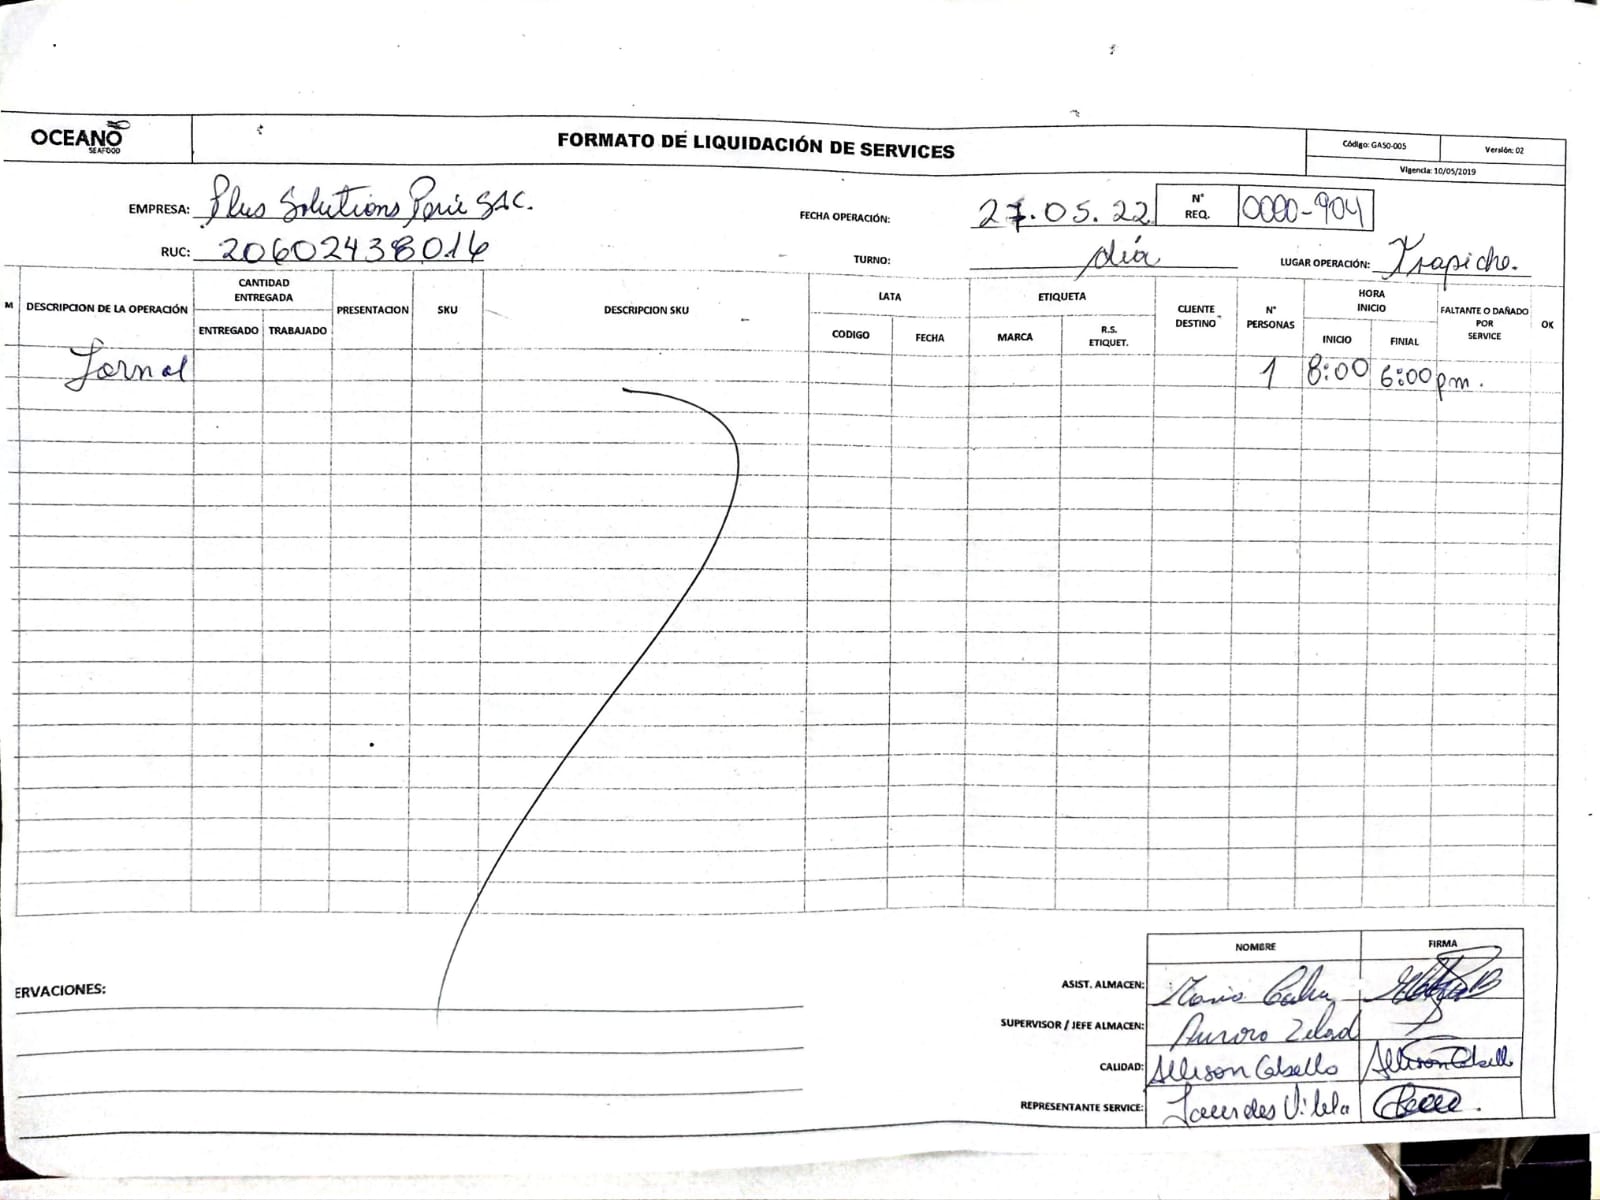 OCEANO
SEAFOOD
FORMATO DE LIQUIDACIÓN DE SERVICES
Código: GASO-005
Versión: 02
Vigencia: 10/05/2019
EMPRESA: Plus Solutions Perú SAC.
FECHA OPERACIÓN: 27.05.22
N° REQ. 0000-904
RUC: 20602438016
TURNO: día
LUGAR OPERACIÓN: Trapiche.
M
DESCRIPCION DE LA OPERACIÓN
CANTIDAD ENTREGADA
ENTREGADO
TRABAJADO
PRESENTACION
SKU
DESCRIPCION SKU
LATA
CODIGO
FECHA
ETIQUETA
MARCA
R.S. ETIQUET.
CLIENTE DESTINO
N° PERSONAS
HORA INICIO
INICIO
FINIAL
FALTANTE O DAÑADO POR SERVICE
OK
Jornal 1 8:00 6:00pm.
ERVACIONES:
NOMBRE
FIRMA
ASIST. ALMACEN:
SUPERVISOR / JEFE ALMACEN:
CALIDAD: Allison Cabello Allison Cabello
REPRESENTANTE SERVICE: Lourdes Vilela